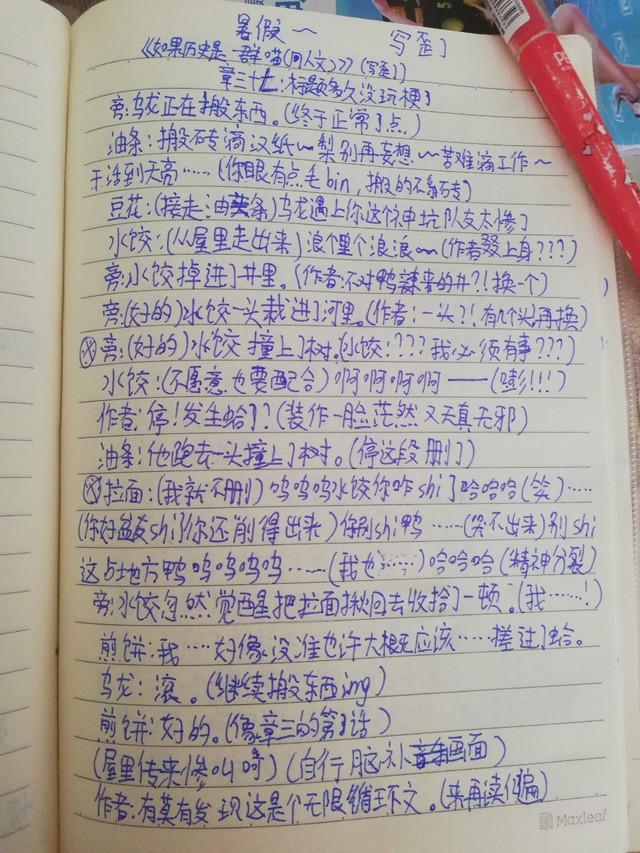 暑假~ 写歪了
《如果历史是一群喵(同人文)》(写歪了)
章三十七:标题多久没玩梗了
旁:乌龙正在搬东西。(终于正常了点)
油条:搬砖滴汉纸~~梨别再妄想~~苦难滴工作~
干活到天亮……(你眼有点毛bin,搬的不系砖)
豆花:(接走油条)乌龙遇上你这个神坑队友太惨了
水饺:(从屋里走出来)浪个里个浪浪~~(作者上身???)
旁:水饺掉进了井里。(作者:不对鸭辣来的井?!换一个)
旁:(好的)水饺一头栽进了河里。(作者:一头?!有几个头再换)
旁:(好的)水饺撞上了树。(水饺:???我必须有事???)
水饺:(不愿意也要配合)啊啊啊啊——(嘭!!!)
作者:停!发生蛤了?(装作一脸茫然又天真无邪)
油条:他跑去一头撞上了树。(停这段删了)
拉面:(我就不删)呜呜呜水饺你咋shi了哈哈哈(笑)……
(你好盆友shi了你还削得出来)你别shi鸭……(哭不出来)别shi
这占地方鸭呜呜呜呜……(我也……)哈哈哈(精神分裂)
旁:水饺忽然觉醒把拉面揪回去收拾了一顿。(我……!)
煎饼:我……好像没准也许大概应该……搓过了蛤。
乌龙:滚。(继续搬东西ing)
煎饼:好的。(像章三的第1话)
(屋里传来惨叫时)(自行脑补画面)
作者:有莫有发现这是个无限循环文。(来再读亿遍)
Maxleaf